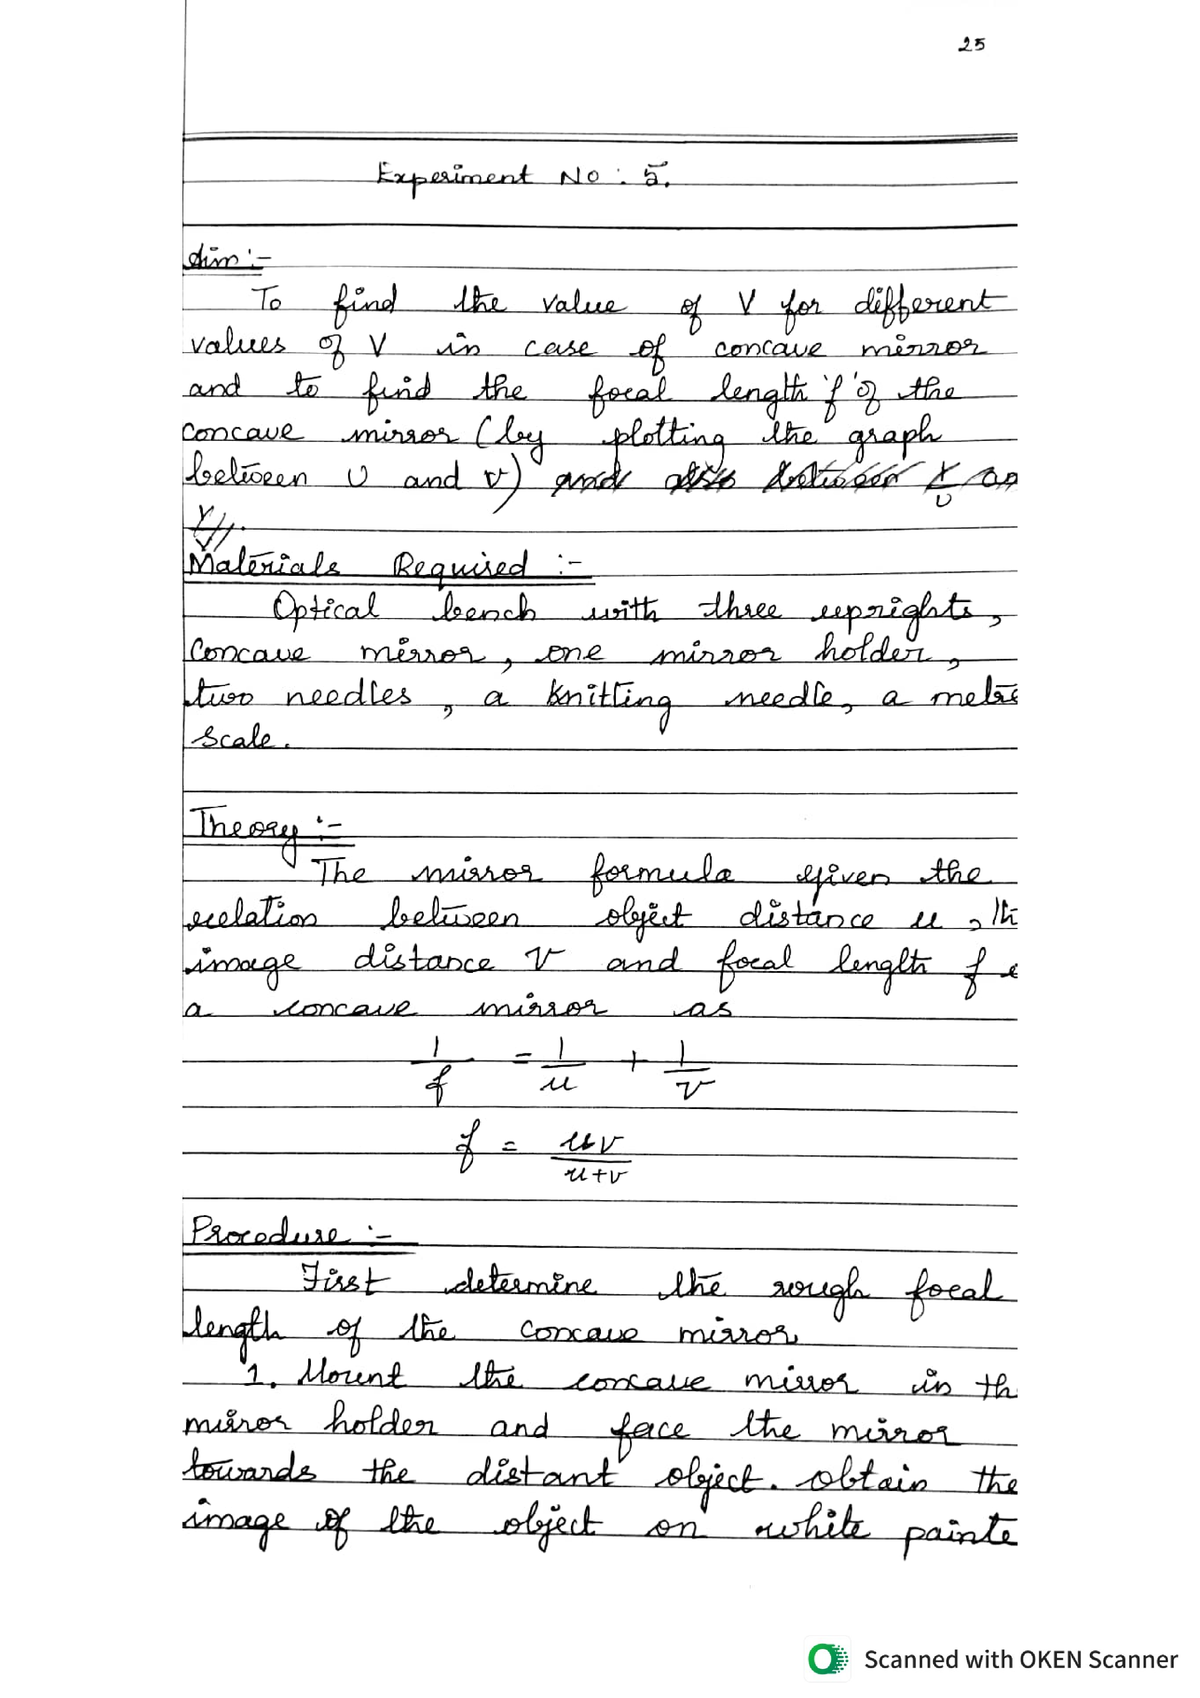 25
Experiment No : 5.
Aim :-
To find the value of V for different
values of V in case of concave mirror
and to find the focal length 'f' of the
concave mirror (by plotting the graph
between U and v) and also between 1/U an
1/V.
Materials Required :-
Optical bench with three uprights,
Concave mirror, one mirror holder,
two needles, a knitting needle, a metre
scale.
Theory :-
The mirror formula given the
relation between object distance u, th
image distance V and focal length f
a concave mirror as
1/f = 1/u + 1/v
f = uv/u+v
Procedure :-
First determine the rough focal
length of the concave mirror
1. Mount the concave mirror in th
mirror holder and face the mirror
towards the distant object. obtain the
image of the object on white painte
Scanned with OKEN Scanner